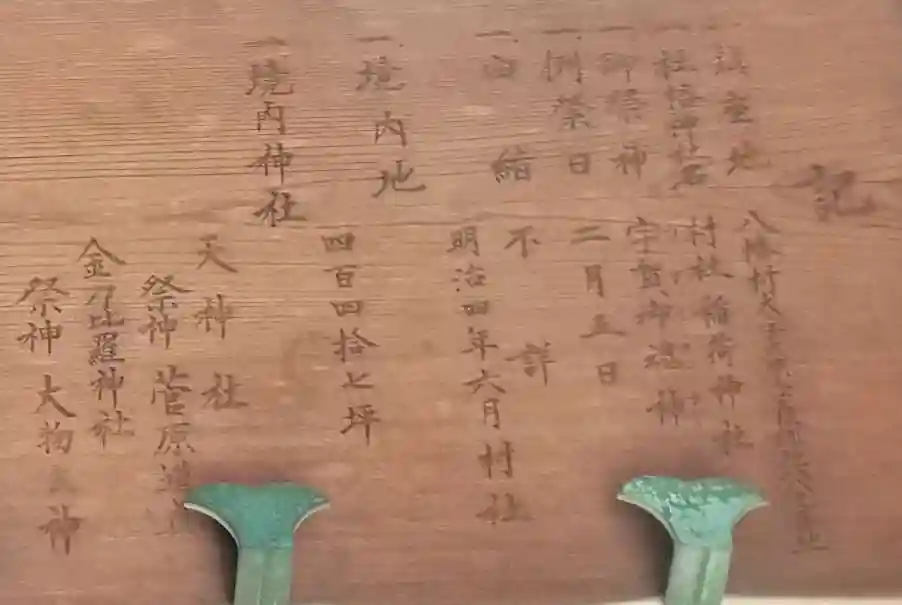 記
一、鎮座地 八幡村大字
一、社格神社名 村社 稲荷神社
一、御祭神 宇賀御魂神
一、例祭日 二月五日
一、由緒 不詳
明治四年六月村社
一、境内地 四百四拾七坪
一、境内神社
天神社
祭神 菅原道
金刀比羅神社
祭神 大物主神